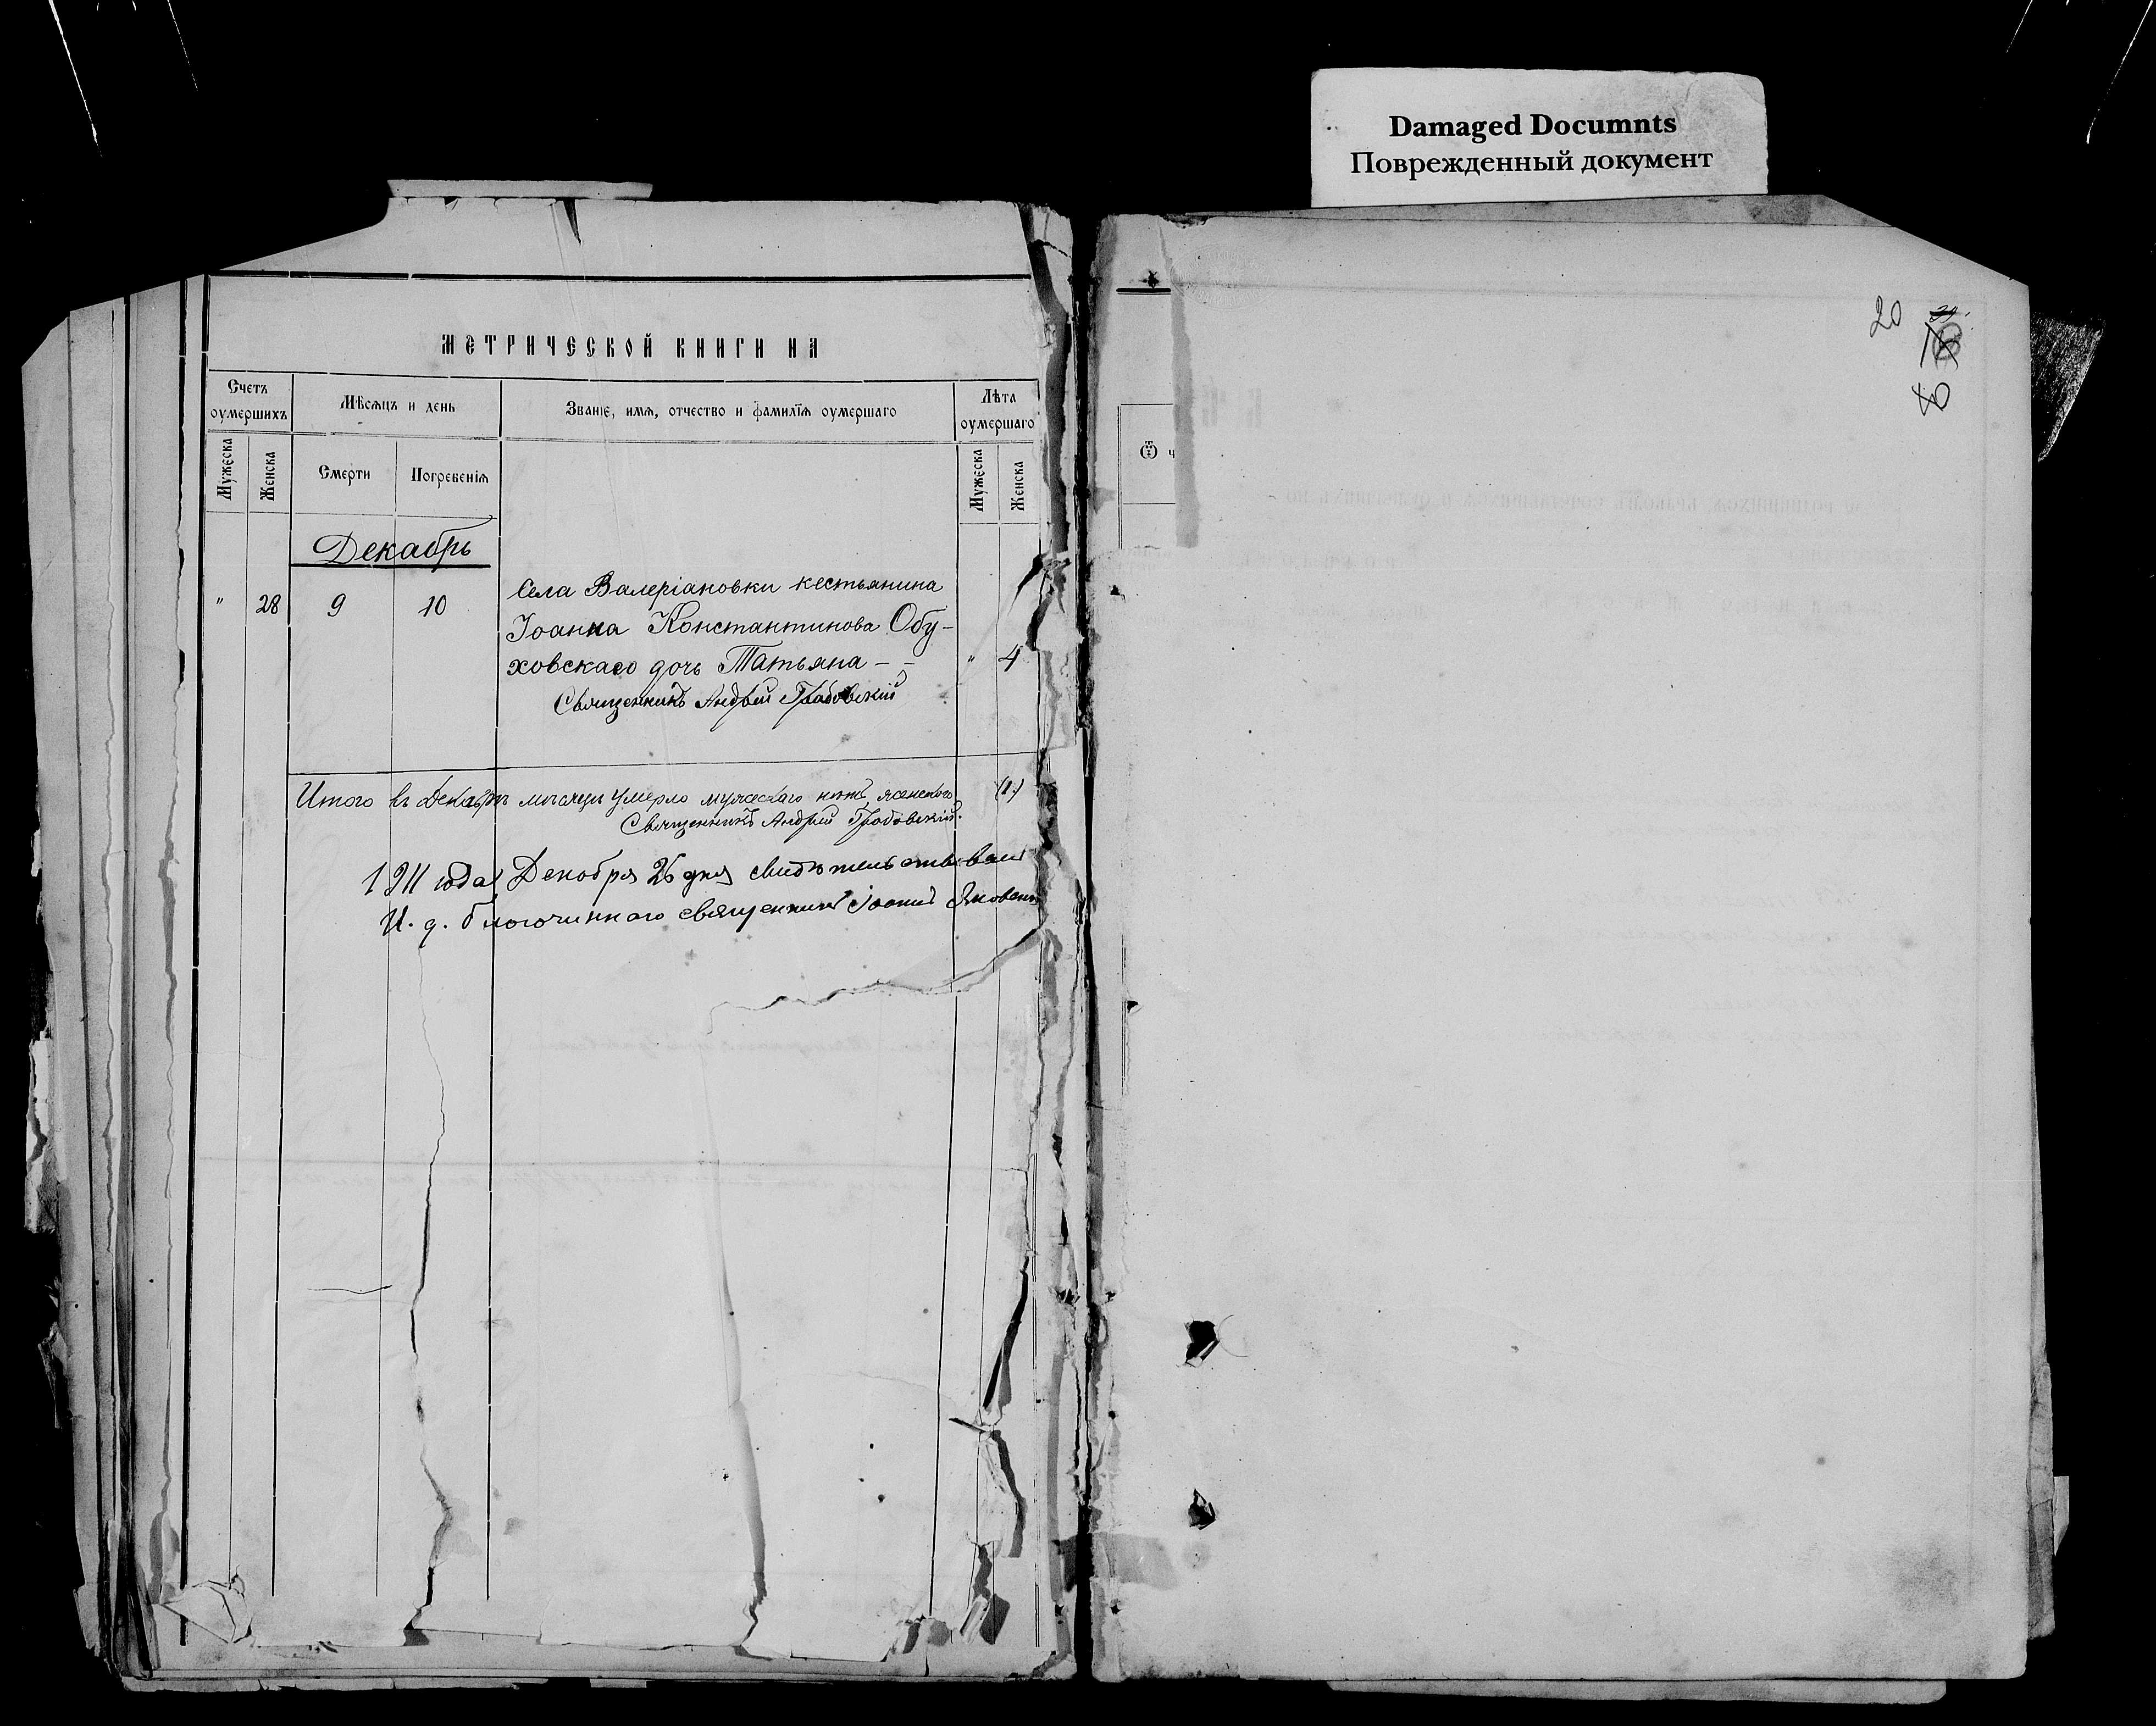 Damaged Documnts
Поврежденный документ
МЕТРИЧЕСКОЙ КНИГИ НА
Счетъ оумершихъ
Мѣсяцъ и день
Званіе, имя, отчество и фамилія оумершаго
Лѣта оумершаго
Мужеска
Женска
Смерти
Погребенія
Мужеска
Женска
Декабрь
" 28 9 10 Села Валеріановки кестьянина
Іоанна Константинова Обу-
ховскаго дочь Татьяна - - " 4
Священникъ Андрей Грабовскій
Итого въ Декабрѣ мѣсяцѣ умерло мужескаго нѣтъ, женскаго (1.)
Священникъ Андрей Грабовскій.
1911 года Декабря 26 дня свидѣтельствовалъ
И. д. благочиннаго священникъ Іоаннъ
Ѿ ч
20